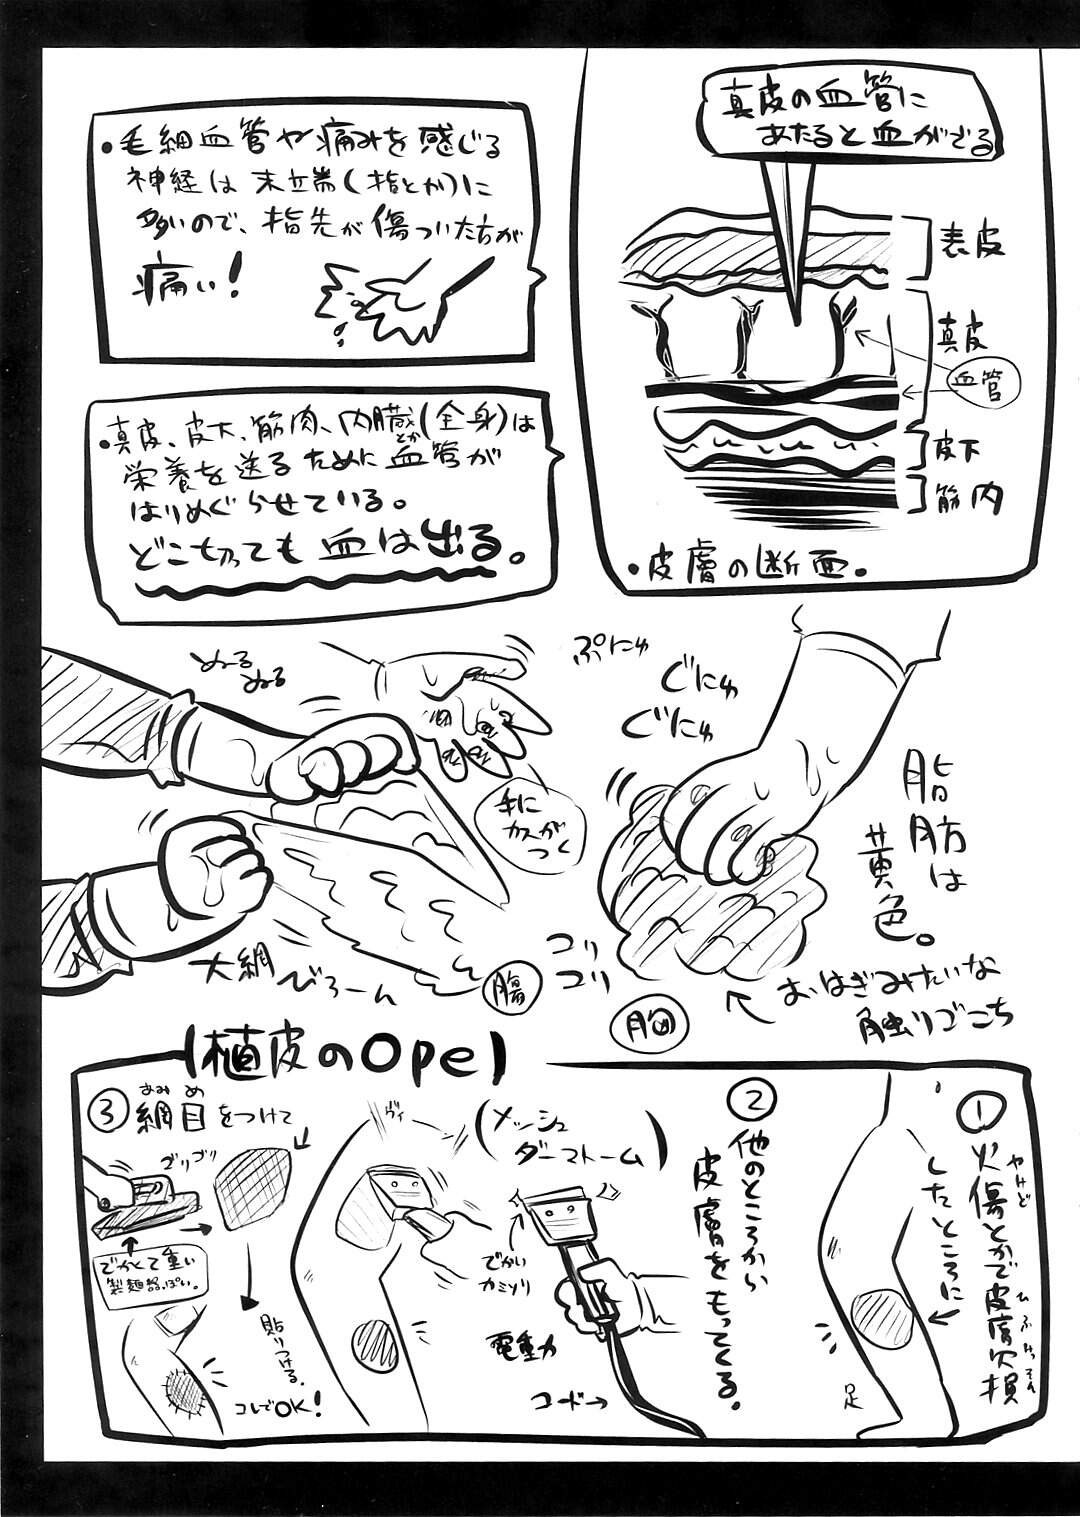 真皮の血管に
あたると血がでる
表皮
真皮
血管
皮下
筋肉
・皮膚の断面。
・毛細血管や痛みを感じる
神経は末端(指とか)に
多いので、指先が傷ついた方が
痛い!
・真皮、皮下、筋肉、内臓とか(全身)は
栄養を送るために血管が
はりめぐらせている。
どこ切っても血は出る。
ぷにゅ
ぐにゅ
ぐにゅ
脂肪は
黄色。
おはぎみたいな
触りごこち
コリ
コリ
胸
ぬるぬる
手に
カスが
つく
大網
びろーん
腸
【植皮のOpe】
①火傷とかで皮膚欠損
やけど
ひふけっそん
したところに
足
②他のところから
皮膚をもってくる。
(メッシュ
ダーマトーム)
でかい
カミソリ
電動
コード→
ヴィ
③網目をつけて
あみめ
ゴリゴリ
でかくて重い
製麺器っぽい。
貼りつける。
コレでOK!